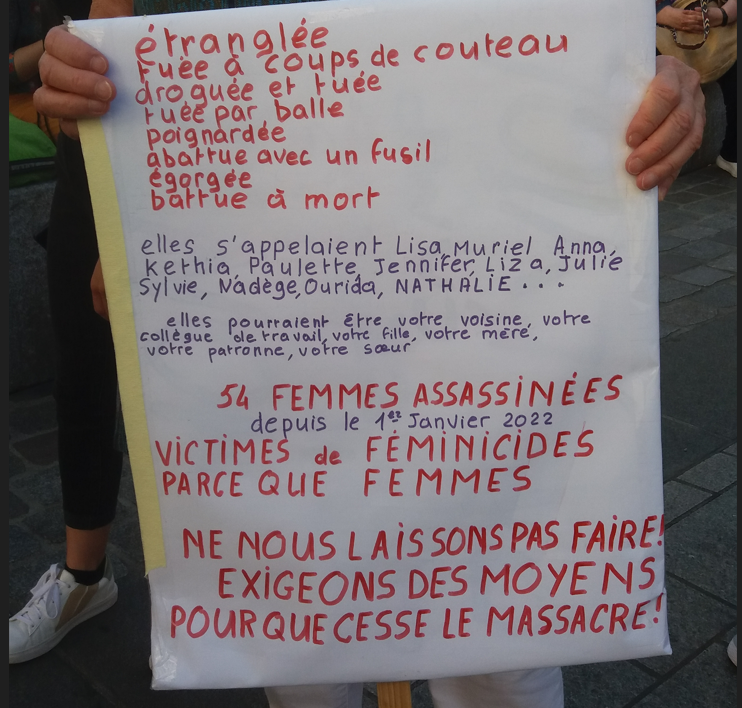 étranglée
tuée à coups de couteau
droguée et tuée
tuée par balle
poignardée
abattue avec un fusil
égorgée
battue à mort
elles s'appelaient Lisa, Muriel Anna,
Kethia, Paulette, Jennifer, Liza, Julie
Sylvie, Nadège, Ourida, NATHALIE...
elles pourraient être votre voisine, votre
collègue de travail, votre fille, votre mère,
votre patronne, votre sœur
54 FEMMES ASSASSINÉES
depuis le 1er Janvier 2022
VICTIMES de FÉMINICIDES
PARCE QUE FEMMES
NE NOUS LAISSONS PAS FAIRE!
EXIGEONS DES MOYENS
POUR QUE CESSE LE MASSACRE!